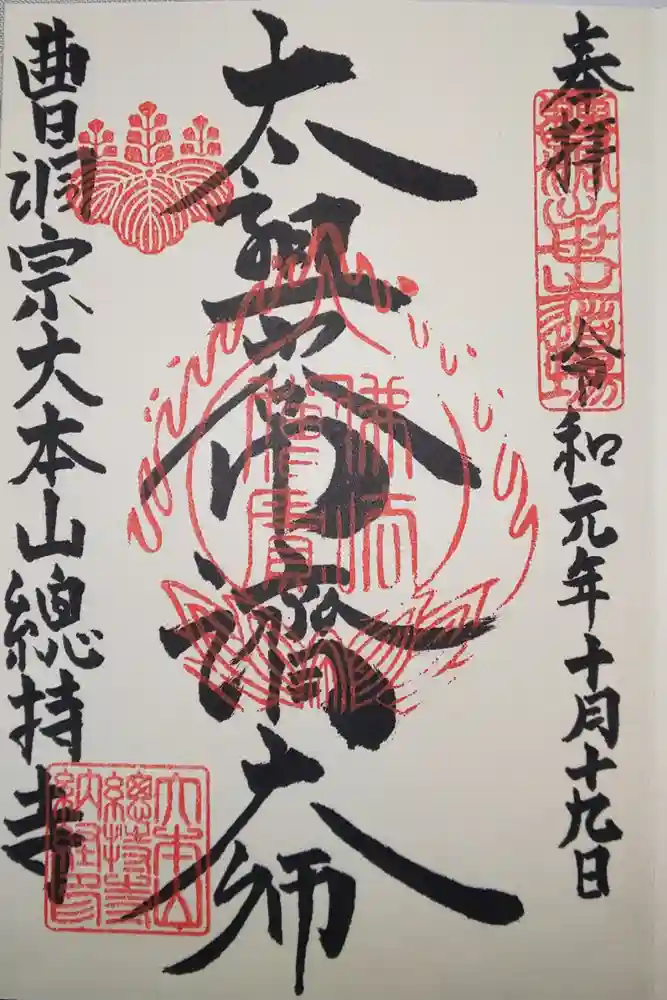 奉拝 令和元年十月十九日
太祖常濟大師
佛法
僧寶
曹洞宗大本山總持寺
大本山
總持寺
納経印